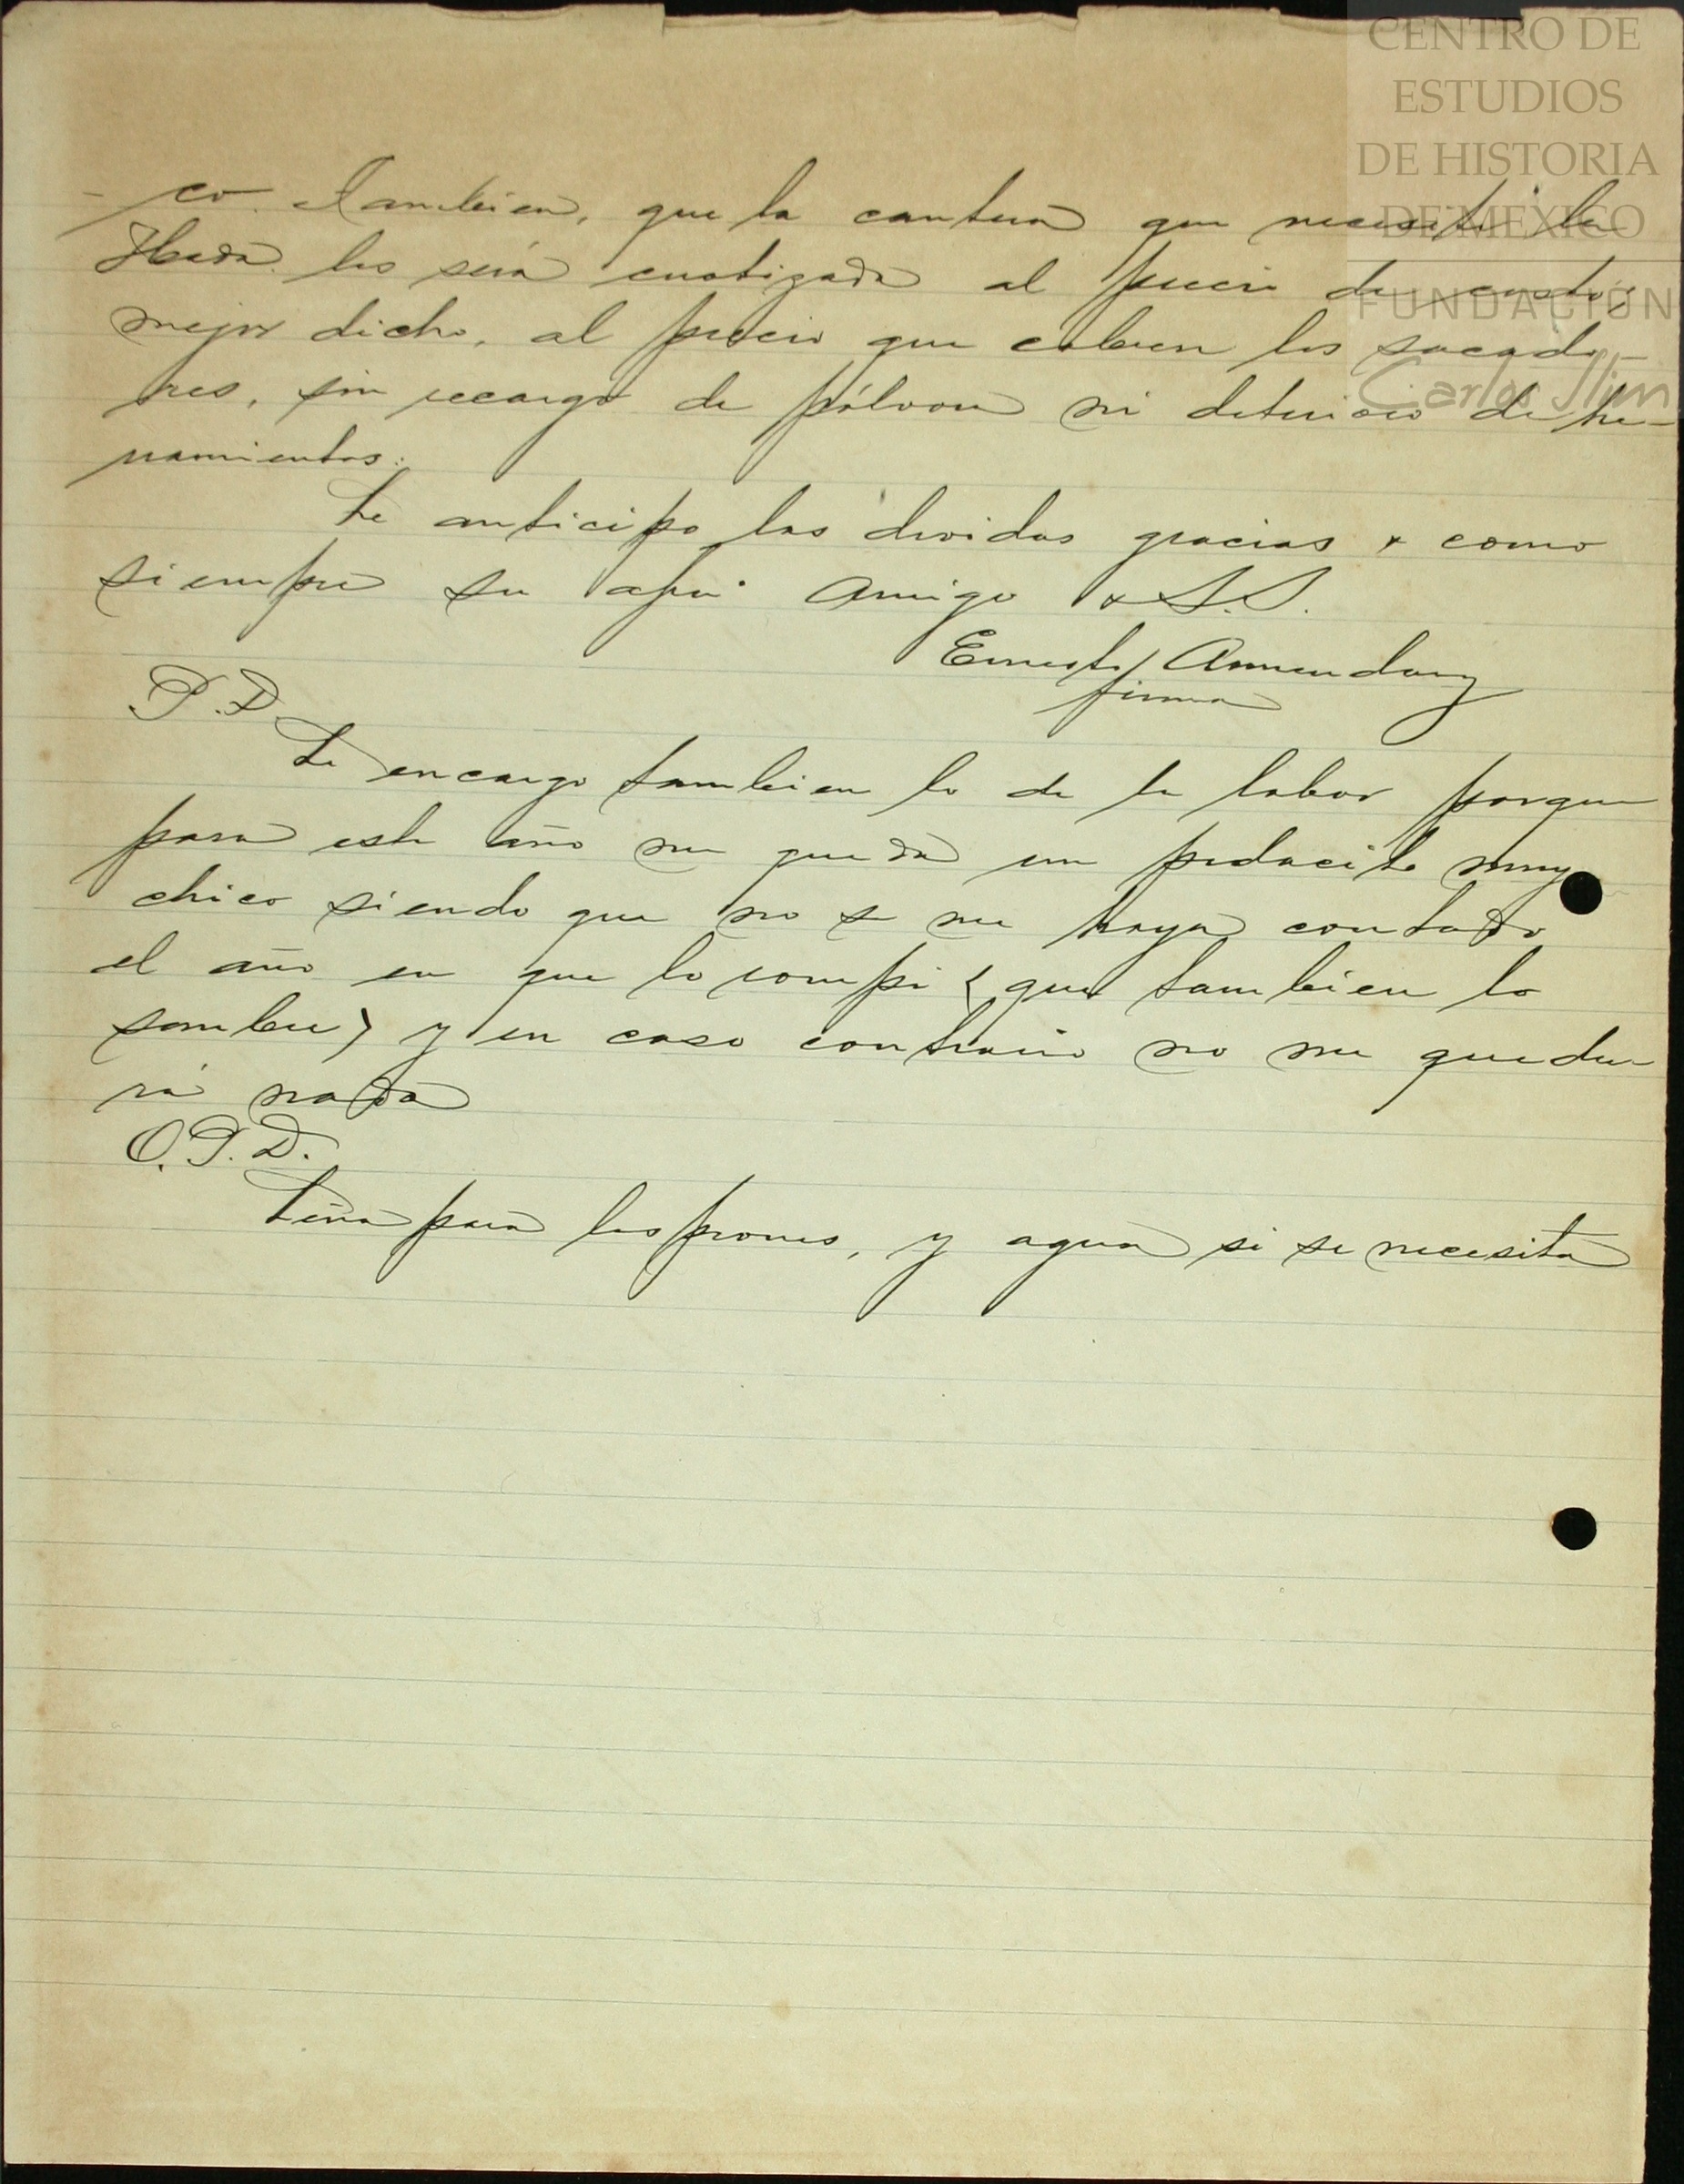 CENTRO DE
ESTUDIOS
DE HISTORIA
DE MÉXICO
FUNDACIÓN
Carlos Slim
- co. Tambien, que la cantera que necesite la
Hcda. les será cuotizada al precio de costo,
mejor dicho, al precio que cobren los sacado-
res, sin recargo de pólvora ni deterioro de he-
rramientas.
Le anticipo las devidas gracias y como
siempre su afmo Amigo y S.S.
Ernesto Armendariz
firma
P.D.
Le encargo tambien lo de la labor porque
para este año me queda un pedacito muy
chico siendo que no se me haya contado
el año en que lo rompí (que tambien lo
sembre) y en caso contrario no me queda-
rá nada
O.P.D.
Leña para los peones, y agua si se necesita